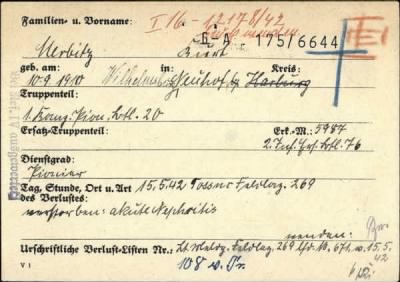 Familien- u. Vorname: I/16-12178/42
Merbitz Kurt G-A 175/6644
geb. am: in: Kreis:
10.9.1910 Wilhelmsburg Neuhof Harburg
Truppenteil:
1. Komp. Pion. Btl. 20
Ersatz-Truppenteil: Erk.-M.: 5987
2. Inf. Ers. Btl. 76
Dienstgrad:
Pionier
Tag, Stunde, Ort u. Art 15.5.42 Feldlaz. 269
des Verlustes:
verstorben: akute Nephritis
Urschriftliche Verlust-Listen Nr.: Lt. Meldg. Feldlaz. 269 lfd. N. v. 15.5.
42
108
V I